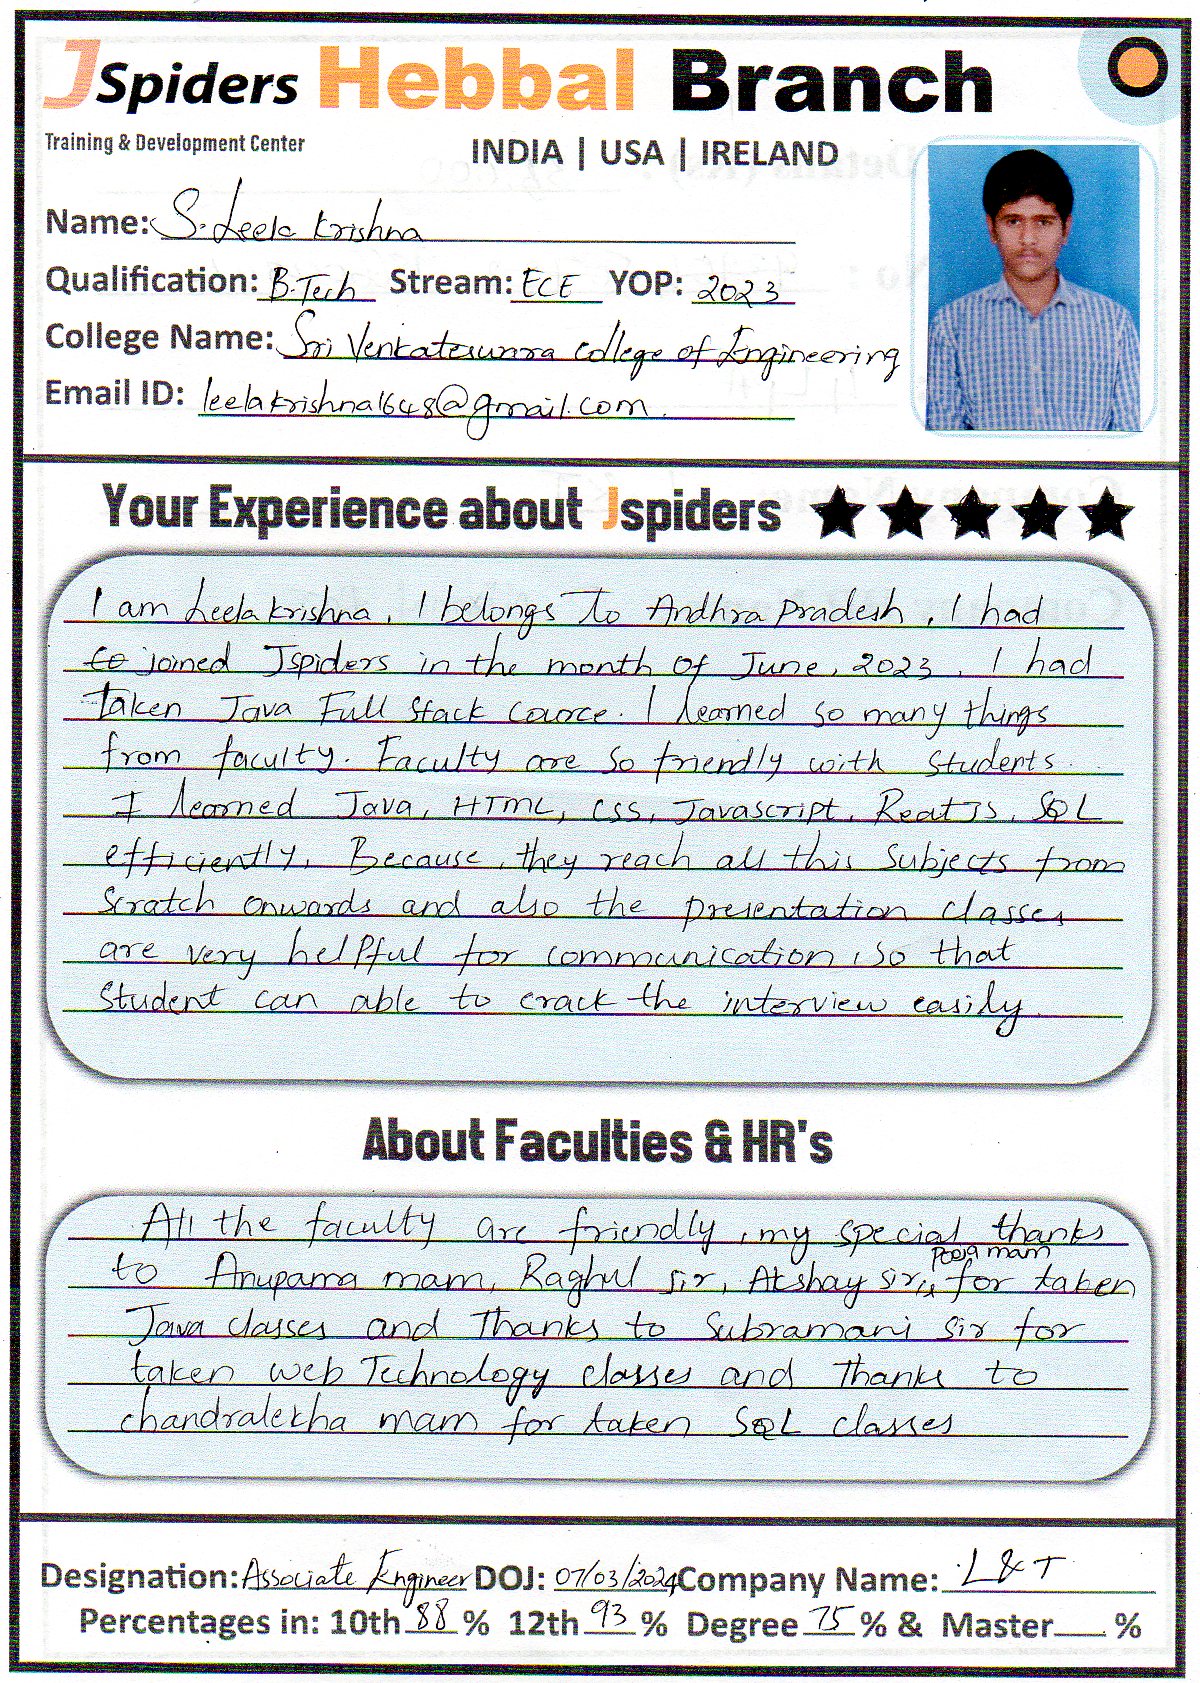 JSpiders Hebbal Branch
Training & Development Center
INDIA | USA | IRELAND
Name: S. Leela Krishna
Qualification: B.Tech Stream: ECE YOP: 2023
College Name: Sri Venkateswara College of Engineering
Email ID: leelakrishna1648@gmail.com.
Your Experience about Jspiders
I am Leela krishna, I belongs To Andhra pradesh, I had
to joined Jspiders in the month of June, 2023, I had
Taken Java Full Stack cource. I learned so many things
from faculty. Faculty are so friendly with students.
I learned Java, HTML, CSS, Javascript, Reat JS, SQL
efficiently, Because, they reach all this subjects from
Scratch onwards and also the presentation classes
are very helpful for communication, so that
Student can able to crack the interview easily.
About Faculties & HR's
All the faculty are friendly, my special thanks
pooja mam
to Anupama mam, Raghul sir, Akshay sir, for taken
Java classes and Thanks to Subramani sir for
taken web Technology classes and Thanks to
chandralekha mam for taken SQL classes
Designation: Associate Engineer DOJ: 07/03/2024 Company Name: L&T
Percentages in: 10th 88 % 12th 93 % Degree 75 % & Master %